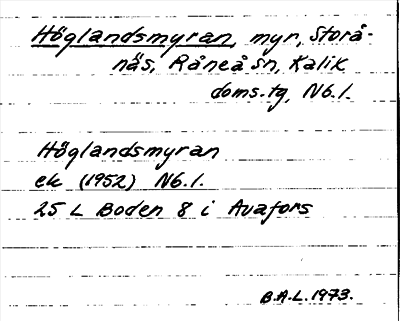 Höglandsmyran, myr, Storå-
näs, Råneå sn, Kalix
doms.tg, Nb.l.
Höglandsmyran
ek (1952) Nb.l.
25 L Boden 8 i Avafors
B.A.L. 1973.